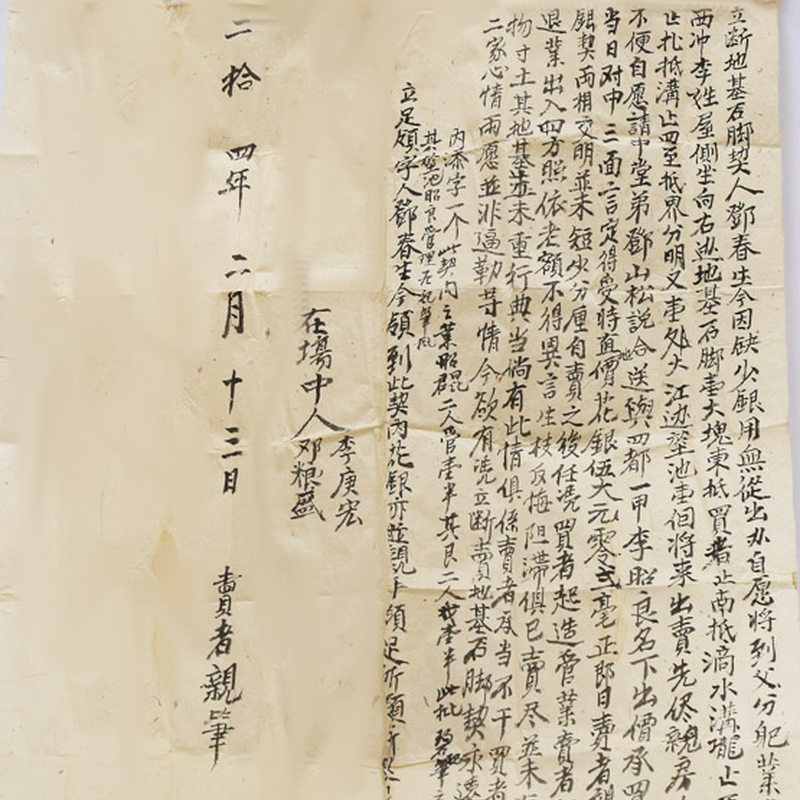 立断地基石脚契人鄧春生今因缺少銀用無從出办自愿將到父分肥業
西冲李姓屋側坐向右边地基石脚壹大塊東抵買者止南抵滴水溝壠止
止北抵溝止四至抵界分明又東外大江边埊池壹個將来出賣先侭親房
不便自愿請中堂弟鄧山松説合送與四都一甲李昭良名下出價承買
当日对中三面言定得受時直價花銀伍大元零弍毫正即日賣者親
銀契兩相交明並未短少分厘自賣之後任凴買者起造管業賣者
退業出入四方照依老額不得異言生枝反悔阻滯俱已賣尽並未
物寸土其地基並未重行典当倘有此情俱係賣者承当不干買者
二家心情兩愿並非逼勒等情今欲有凴立断賣地基石脚契永遠
内添字一个此契内之業昭君二人管壹半其良二人管壹半此批
其埊池昭良管理
立足領字人鄧春生今領到此契内花銀亦並親手領足所領所
在場中人李庚宏
邓粮盛
二拾四年二月十三日 賣者親筆